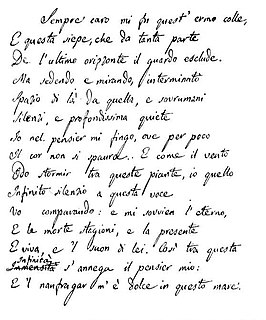 Sempre caro mi fu quest' ermo colle,
E questa siepe, che da tanta parte
De l'ultimo orizzonte il guardo esclude.
Ma sedendo e mirando, l'interminato
Spazio di là da quella, e sovrumani
Silenzi, e profondissima quiete
Io nel pensier mi fingo, ove per poco
Il cor non si spaura. E come il vento
Odo stormir tra queste piante, io quello
Infinito silenzio a questa voce
Vo comparando: e mi sovvien l'eterno,
E le morte stagioni, e la presente
E viva, e 'l suon di lei. Così tra questa
Infinità
Immensità s'annega il pensier mio:
E 'l naufragar m'è dolce in questo mare.